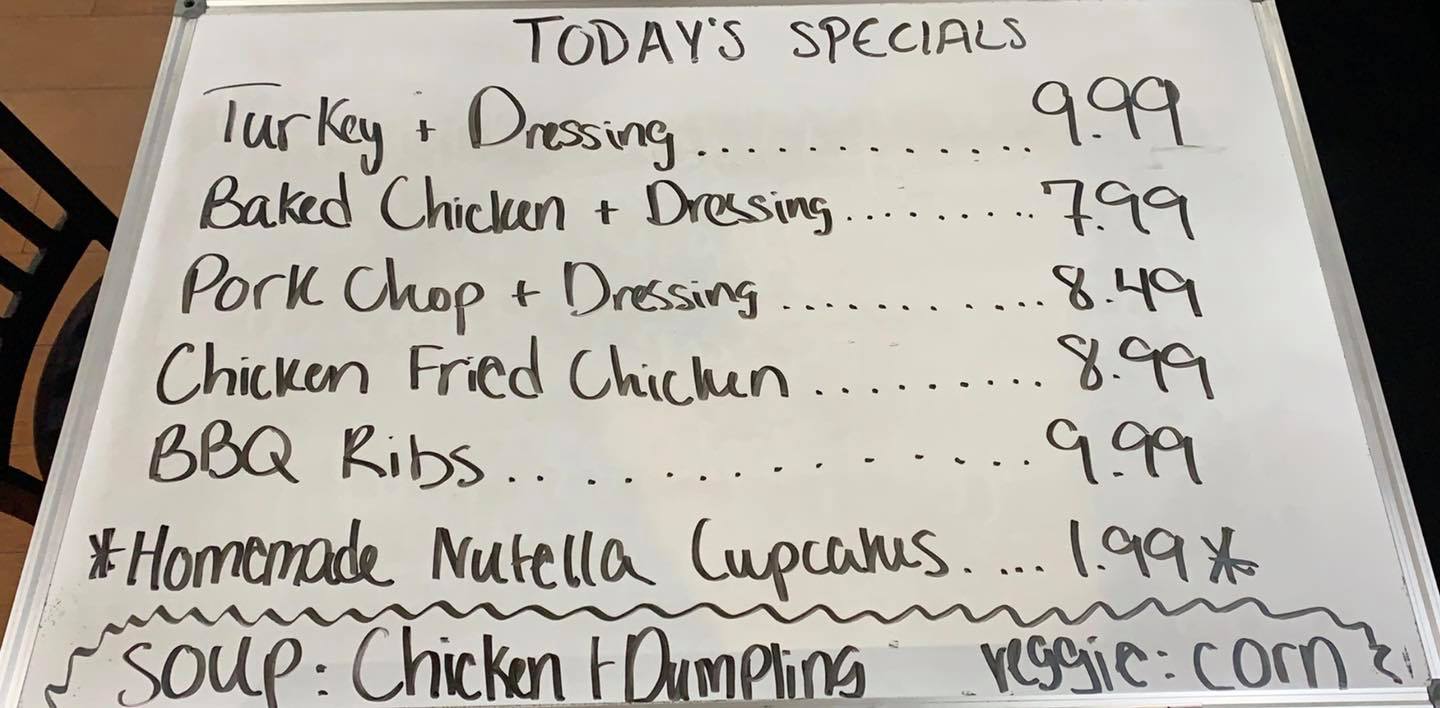 TODAY'S SPECIALS
Turkey + Dressing............ 9.99
Baked Chicken + Dressing......... 7.99
Pork Chop + Dressing ........... 8.49
Chicken Fried Chicken ......... 8.99
BBQ Ribs............. 9.99
*Homemade Nutella Cupcakes. ... 1.99 *
Soup: Chicken + Dumpling veggie: corn